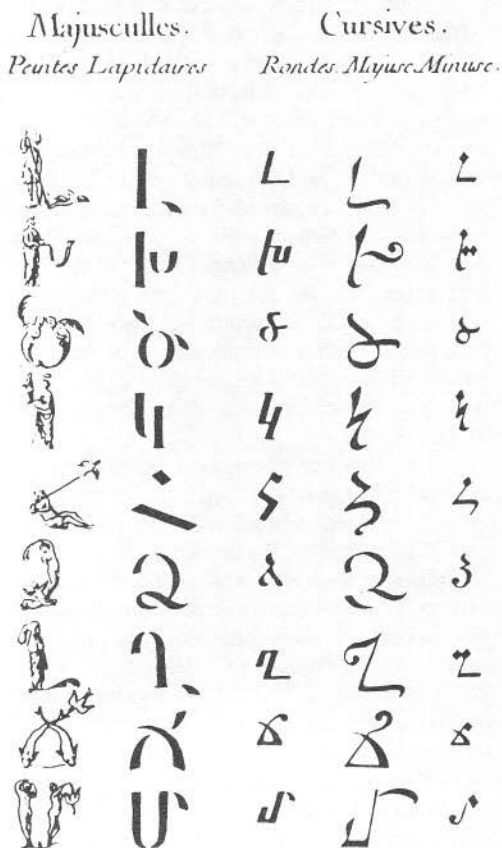 Majusculles. Cursives.
Peintes Lapidaires Rondes. Majusc. Minusc.
Լ լ Լ լ
Խ խ Խ խ
Ծ ծ Ծ ծ
Կ կ Կ կ
Հ հ Հ հ
Ձ ձ Ձ ձ
Ղ ղ Ղ ղ
Ճ ճ Ճ ճ
Մ մ Մ մ